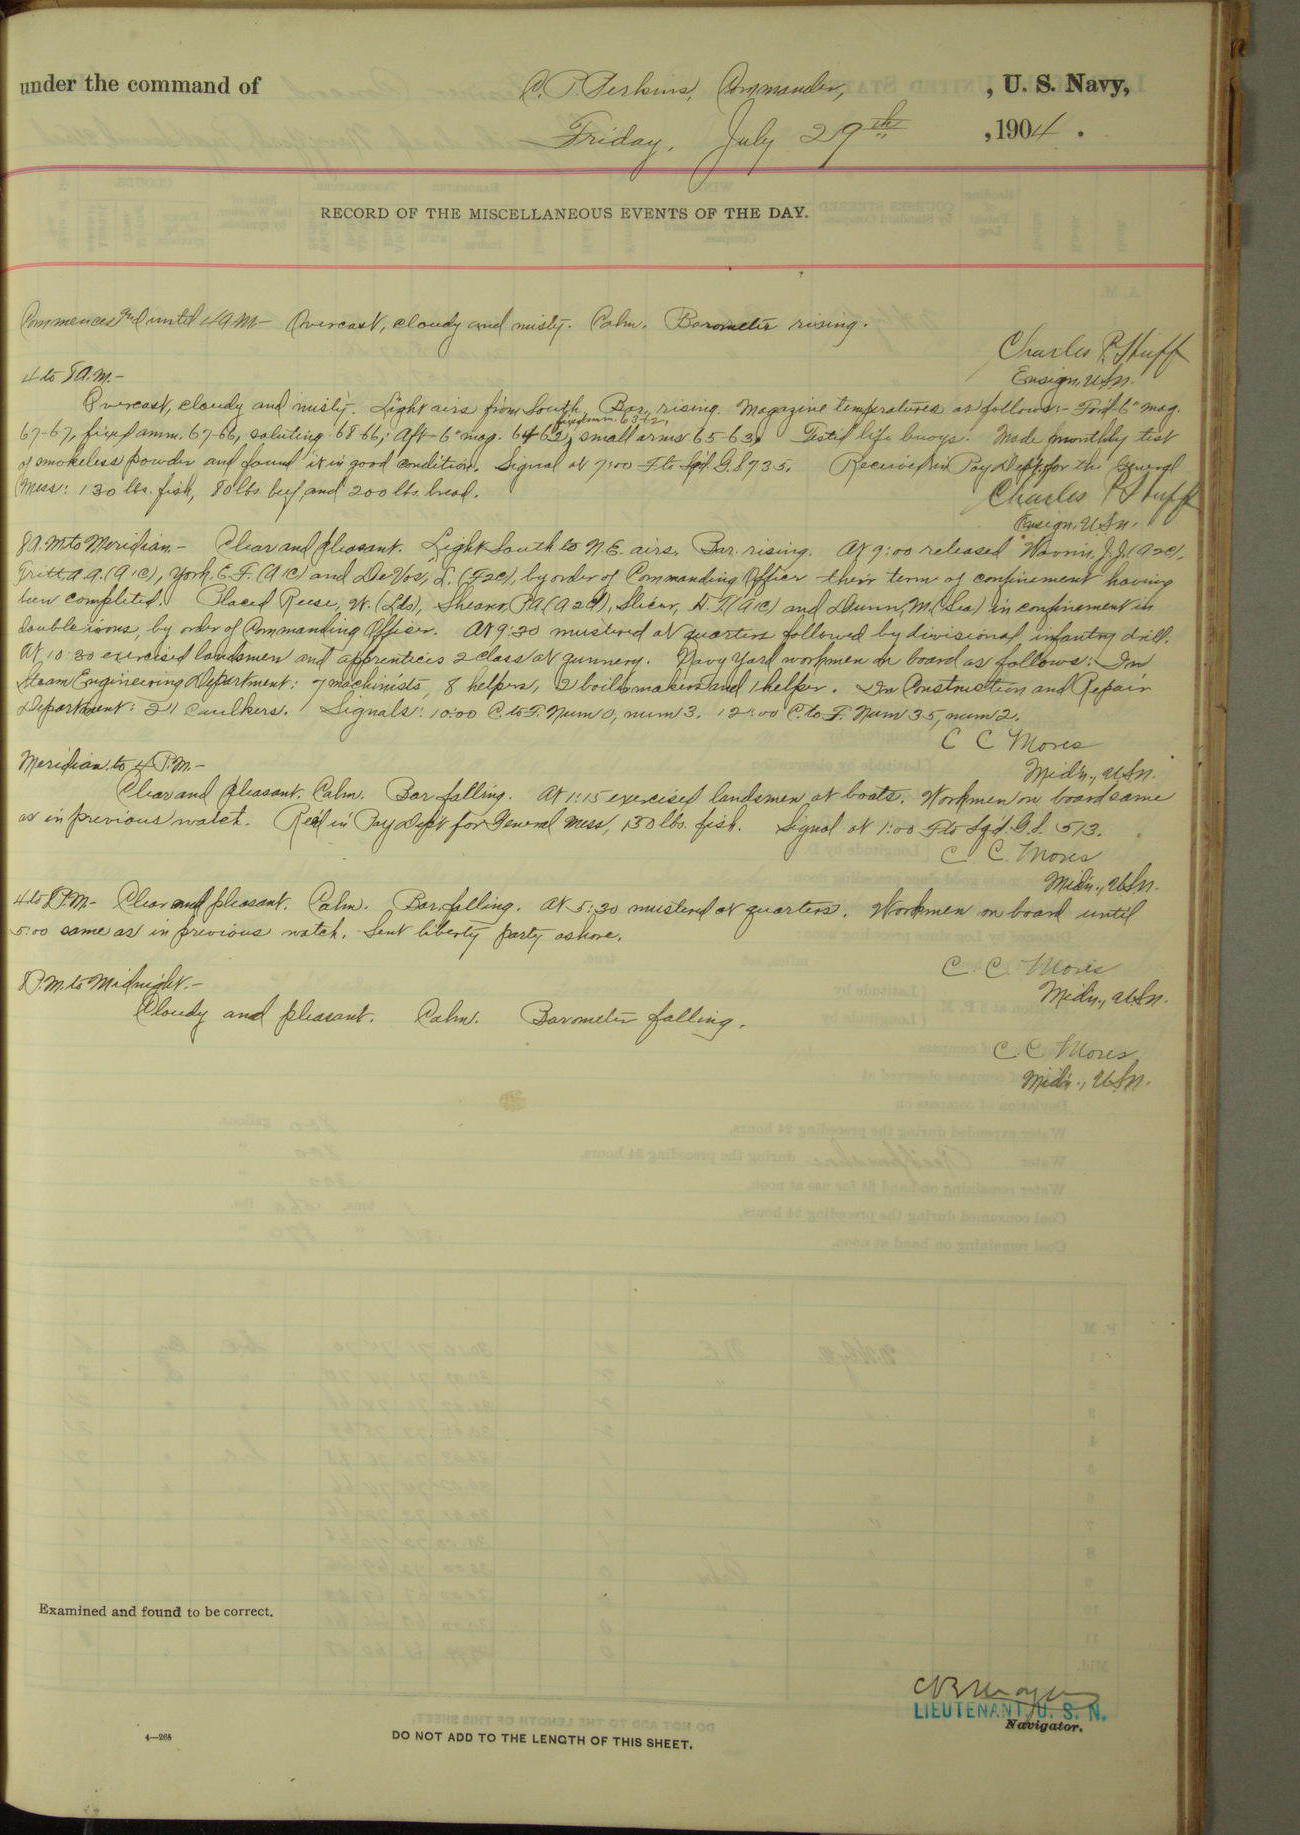 under the command of C. P. Perkins, Commander, , U. S. Navy,
Friday, July 29th , 1904 .
RECORD OF THE MISCELLANEOUS EVENTS OF THE DAY.
Commences and until 4 A.M- Overcast, cloudy and misty. Calm. Barometer rising.
Charles P. Huff
Ensign, U.S.N.
4 to 8 A.M.-
Overcast, cloudy and misty. Light airs from South. Bar. rising. Magazine temperatures as follows:- For'd-6" mag.
fixed amm. 63-62,
67-67, fixed amm. 67-66, saluting 68-66; Aft-6" mag. 64-62, small arms 65-63. Tested life buoys. Made monthly test
of smokeless powder and found it in good condition. Signal at 7:00 F to Sqd. G.S 735. Received in Pay Dept. for the General
Mess: 130 lbs. fish, 80 lbs. beef and 200 lbs. bread.
Charles P. Huff
Ensign, U.S.N.
8 A.M. to Meridian- Clear and pleasant. Light South to N.E. airs. Bar. rising. At 9:00 released J.J. (A2c),
Tritt A.A. (A1c), York, E.F. (A1c) and DeVos, L. (F2c), by order of Commanding Officer their term of confinement having
been completed. Placed Reese, W. (Lds), P.A. (A2c), (A1c) and Dunn, M. (Sea) in confinement in
double irons, by order of Commanding Officer. At 9:30 mustered at quarters followed by divisional infantry drill.
At 10:30 exercised landsmen and apprentices 2 class at gunnery. Navy Yard workmen on board as follows: In
Steam Engineering Department: 7 machinists, 8 helpers, 2 boilermakers and 1 helper. In Construction and Repair
Department: 21 Caulkers. Signals: 10:00 C. to F. Num 0, num 3. 12:00 C. to F. Num 35, num 2.
C C Moses
Mid'n., U.S.N.
Meridian to 4 P.M.-
Clear and pleasant. Calm. Bar falling. At 1:15 exercised landsmen at boats. Workmen on board same
as in previous watch. Rec'd in Pay Dept for General Mess, 130 lbs. fish. Signal at 1:00 F to Sqd. G.S. 513.
C. C. Moses
Mid'n., U.S.N.
4 to 8 P.M- Clear and pleasant. Calm. Bar. falling. At 5:30 mustered at quarters. Workmen on board until
5:00 same as in previous watch. Sent liberty party ashore.
C. C. Moses
Mid'n., U.S.N.
8 P.M. to Midnight.-
Cloudy and pleasant. Calm. Barometer falling.
C. C. Moses
Mid'n., U.S.N.
Examined and found to be correct.
LIEUTENANT, U. S. N.
Navigator.
4—268
DO NOT ADD TO THE LENGTH OF THIS SHEET.